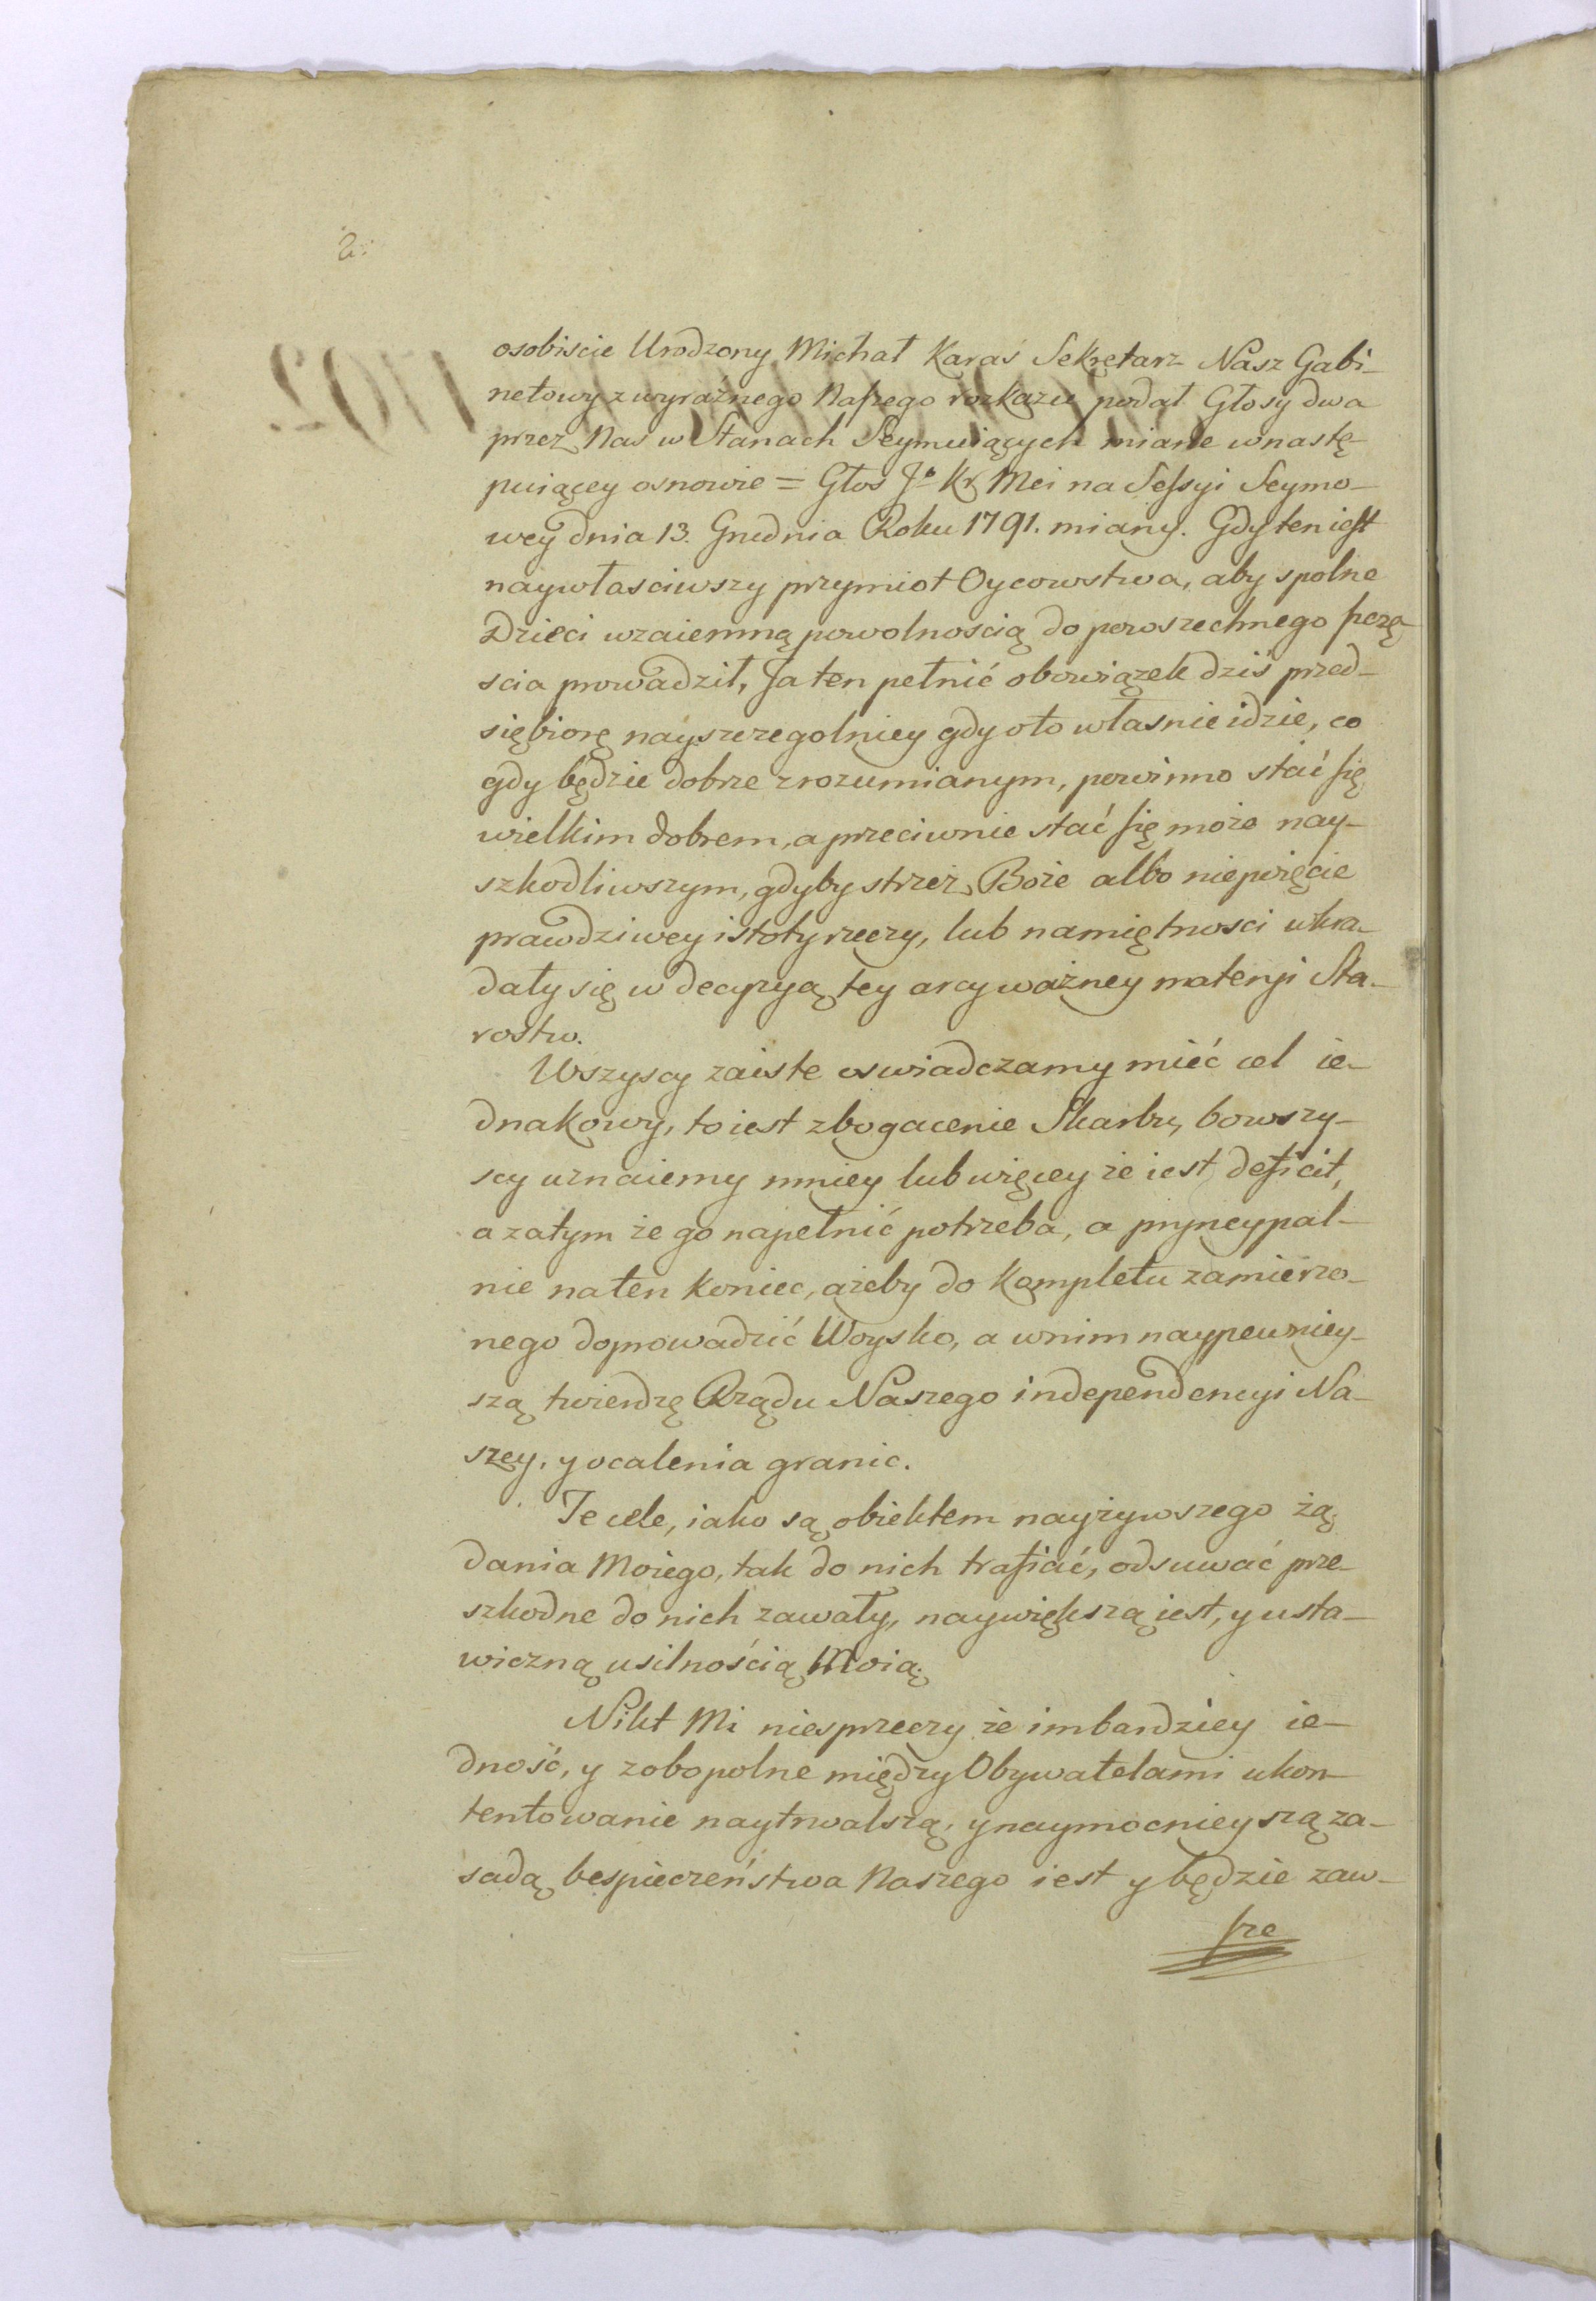 2.
osobiscie Urodzony Michał Karaś Sekretarz Nasz Gabi-
netowy z wyraźnego Naszego rozkazu podał Głosy dwa
przez Nas w Stanach Seymuiących miane w nastę-
puiącey osnowie = Głos Jº Kr Mci na Sessyi Seymo-
wey dnia 13. Grudnia Roku 1791. miany. Gdy ten iest
naywłasciwszy przymiot Oycowstwa, aby spolne
Dzieci wzaiemną powolnoscią do powszechnego szczę-
scia prowadził, Ja ten pełnić obowiązek dziś przed-
siębiorę nayszczegolniey gdy oto własnie idzie, co
gdy będzie dobrze zrozumianym, powinno stać się
wielkim dobrem, a przeciwnie stać się może nay-
szkodliwszym, gdyby strzeż Boże albo niepoięcie
prawdziwey istoty rzeczy, lub namiętnosci wkra-
dały się w decyzyą tey arcyważney materyi Sta-
rostw.
Wszyscy zaiste oswiadczamy mieć cel ie-
dnakowy, to iest zbogacenie Skarbu, bo wszy-
scy uznaiemy mniey lub więcey że iest deficit,
a zatym że go napełnić potrzeba, a pryncypal-
nie na ten koniec, ażeby do kompletu zamierzo-
nego doprowadzić Woysko, a w nim naypewniey-
szą twierdzę Rządu Naszego independencyi Na-
szey, y ocalenia granic.
Te cele, iako są obiektem nayżywszego żą-
dania Moiego, tak do nich trafiać, odsuwać prze-
szkodne do nich zawały, naywiększą iest, y usta-
wiczną usilnością Moią.
Nikt Mi niesprzeczy że im bardziey ie-
dność, y zobopolne między Obywatelami ukon-
tentowanie naytrwalszą, y naymocnieyszą za-
sadą bespieczeństwa Naszego iest y będzie zaw-
sze